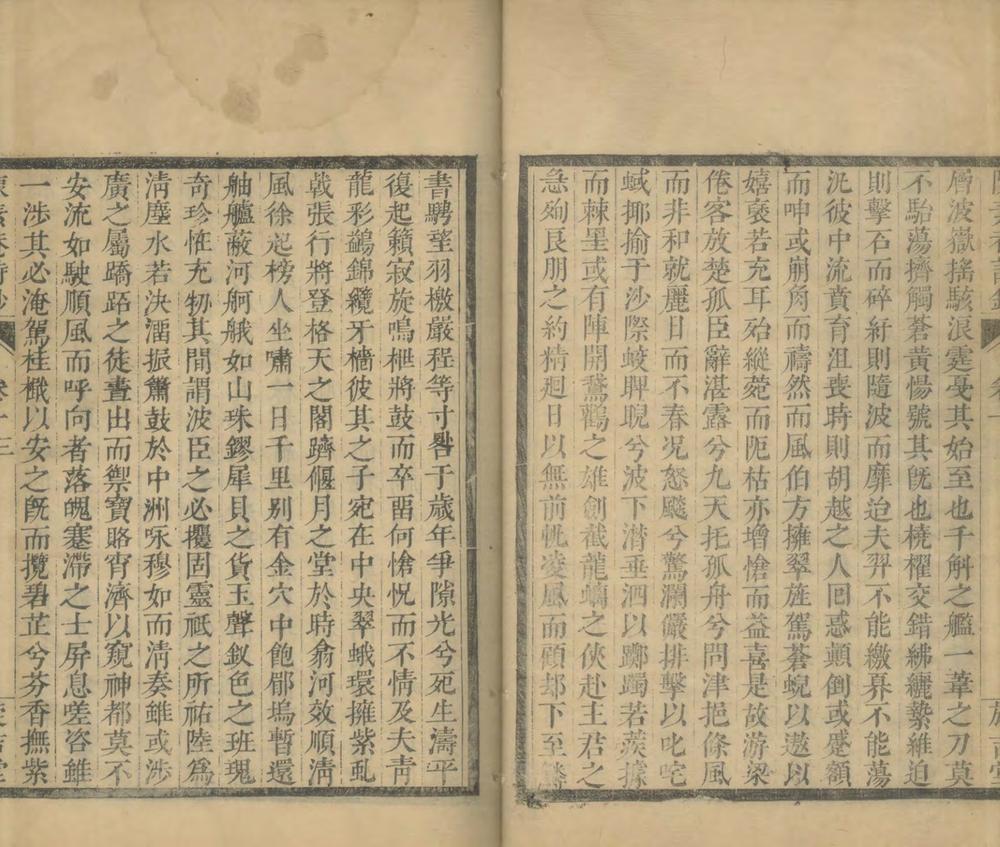 層波嶽搖駭浪霆戞其始至也千斛之艦一葦之刀莫
不駘蕩擠觸蒼黃惕號其旣也橈櫂交錯紼纚縶維迫
則擊石而碎紆則隨波而靡迨夫羿不能繳奡不能蕩
況彼中流賁育沮喪時則胡越之人囘惑顛倒或蹙額
而呻或崩角而禱然而風伯方擁翠旌駕蒼蜺以遨以
嬉褎若充耳始縱莞而阨枯亦增愴而益喜是故游梁
倦客放楚孤臣辭湛露兮九天托孤舟兮問津挹條風
而非和就麗日而不春況怒飈兮驚瀾儼排擊以叱咤
蜮揶揄于沙際蛟睥睨兮波下潸垂泗以躑躅若蒺據
而棘罣或有陣開鵞鸛之雄創截龍螭之俠赴主君之
急殉良朋之約精廻日以無前帆凌風而頋却下至鱗
書騁望羽檄嚴程等寸晷于歲年爭隙光兮死生濤平
復起籟寂旋鳴枻將鼓而卒畱何愴怳而不情及夫靑
龍彩鷁錦纜牙檣彼其之子宛在中央翠蛾環擁紫虬
戟張行將登格天之閣躋偃月之堂於時翕河效順淸
風徐起榜人坐嘯一日千里别有金穴中飽郿塢暫還
舳艫蔽河舸艤如山珠鏐犀貝之貨玉聲釵色之班瑰
奇珍恠充牣其間謂波臣之必攫固靈祇之所祐陸爲
淸塵水若決澑振簫鼓於中洲咏穆如而淸奏雖或涉
廣之屬蹻跖之徒晝出而禦寶賂宵濟以窺神都莫不
安流如駛順風而呼向者落魄蹇滯之士屏息嗟咨雖
一涉其必淹駕桂檝以安之旣而攬碧芷兮芬香撫紫
卷十三